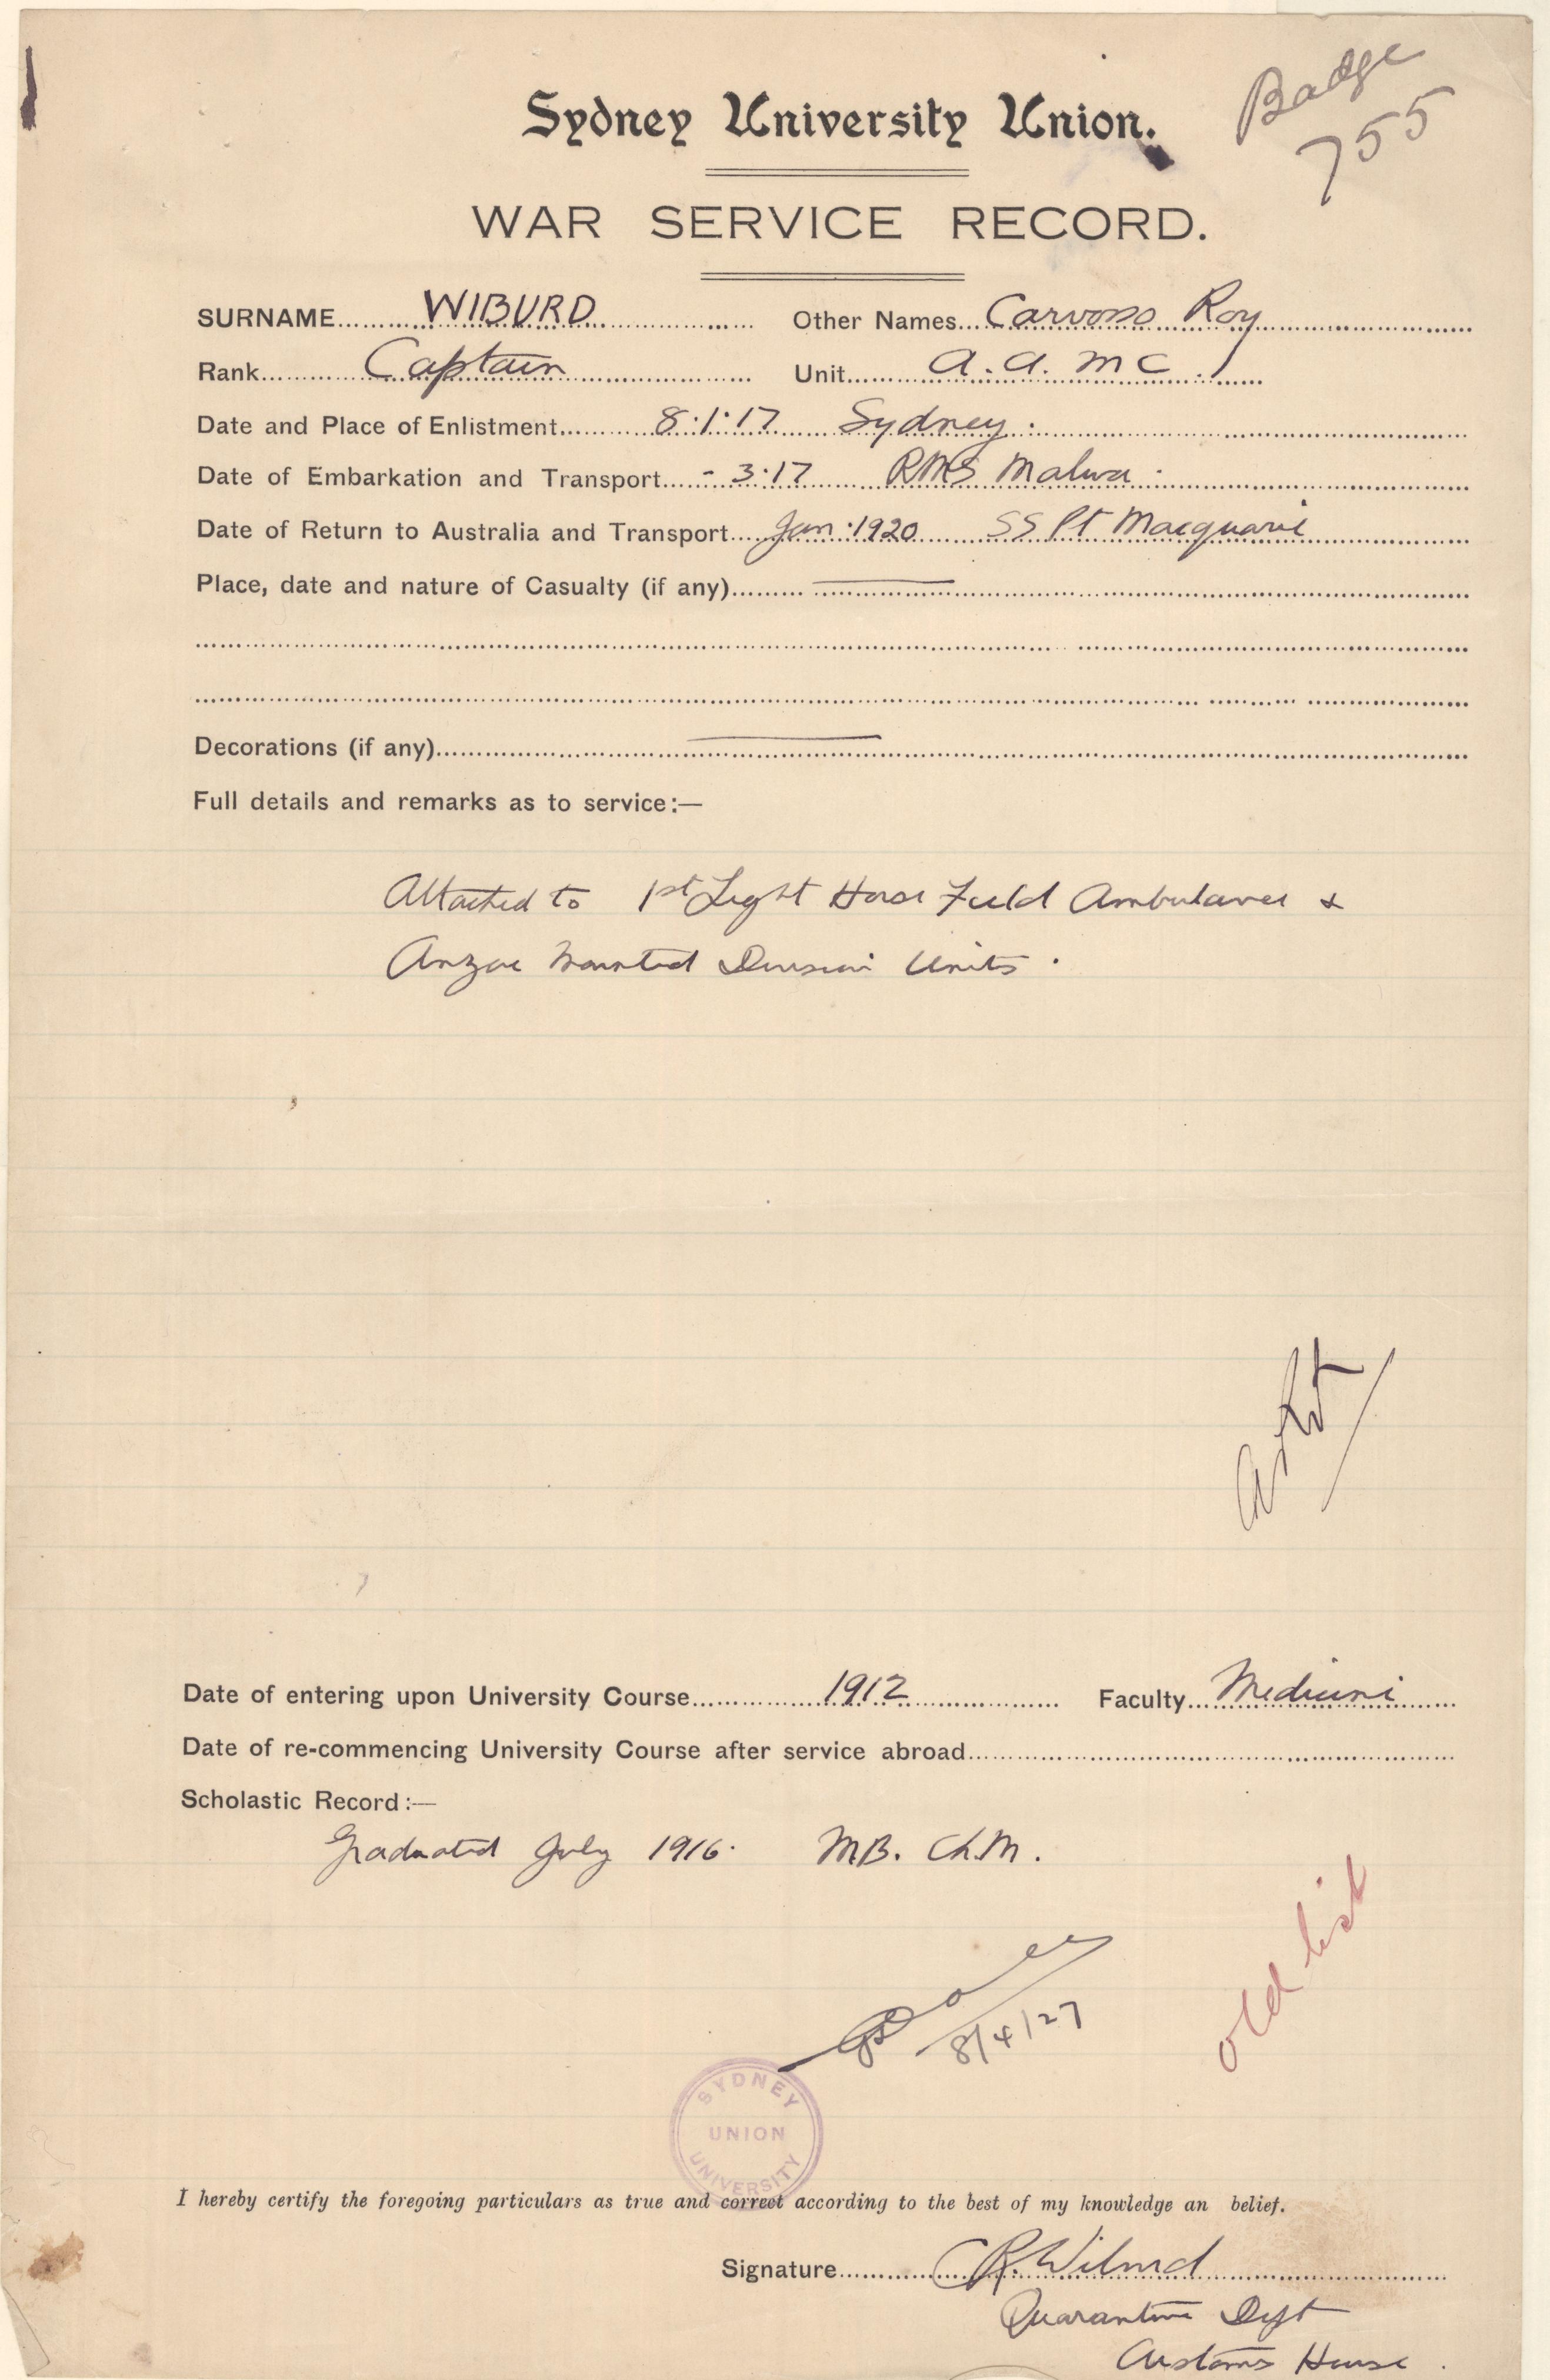 Badge
755
Sydney University Union.
WAR SERVICE RECORD.
SURNAME WIBURD Other Names Carvosso Roy
Rank Captain Unit A.A.M C.
Date and Place of Enlistment 8.1.17 Sydney.
Date of Embarkation and Transport - 3.17 RMS Malwa.
Date of Return to Australia and Transport Jan. 1920 SS Pt Macquarie
Place, date and nature of Casualty (if any)
Decorations (if any)
Full details and remarks as to service:—
Attached to 1st Light Horse Field Ambulance &
Anzac Mounted Division Units.
Date of entering upon University Course 1912 Faculty Medicine
Date of re-commencing University Course after service abroad
Scholastic Record:—
Graduated July 1916. MB. Ch.M.
old list
8/4/27
SYDNEY
UNION
UNIVERSITY
I hereby certify the foregoing particulars as true and correct according to the best of my knowledge an belief.
Signature CR. Wiburd
Quarantine Dept
Customs House.